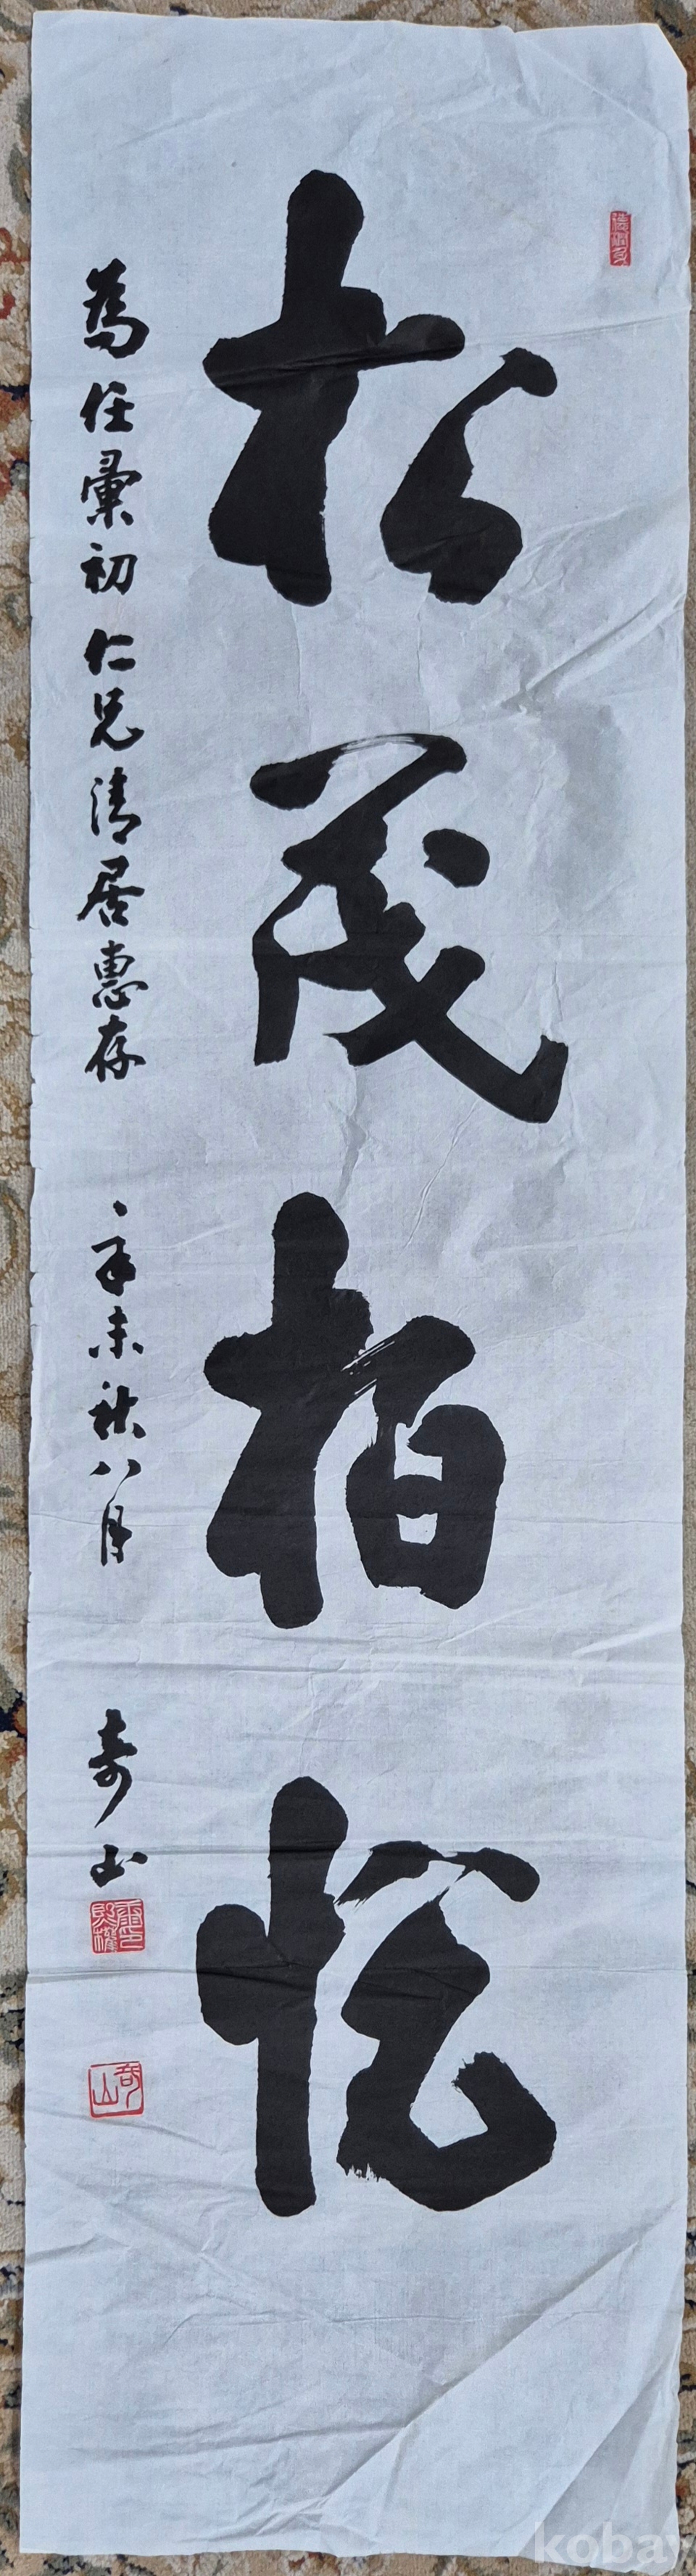 松茂柏悅
為任彙初仁兄清居惠存 辛未秋八月 奇山
奇山
kobay